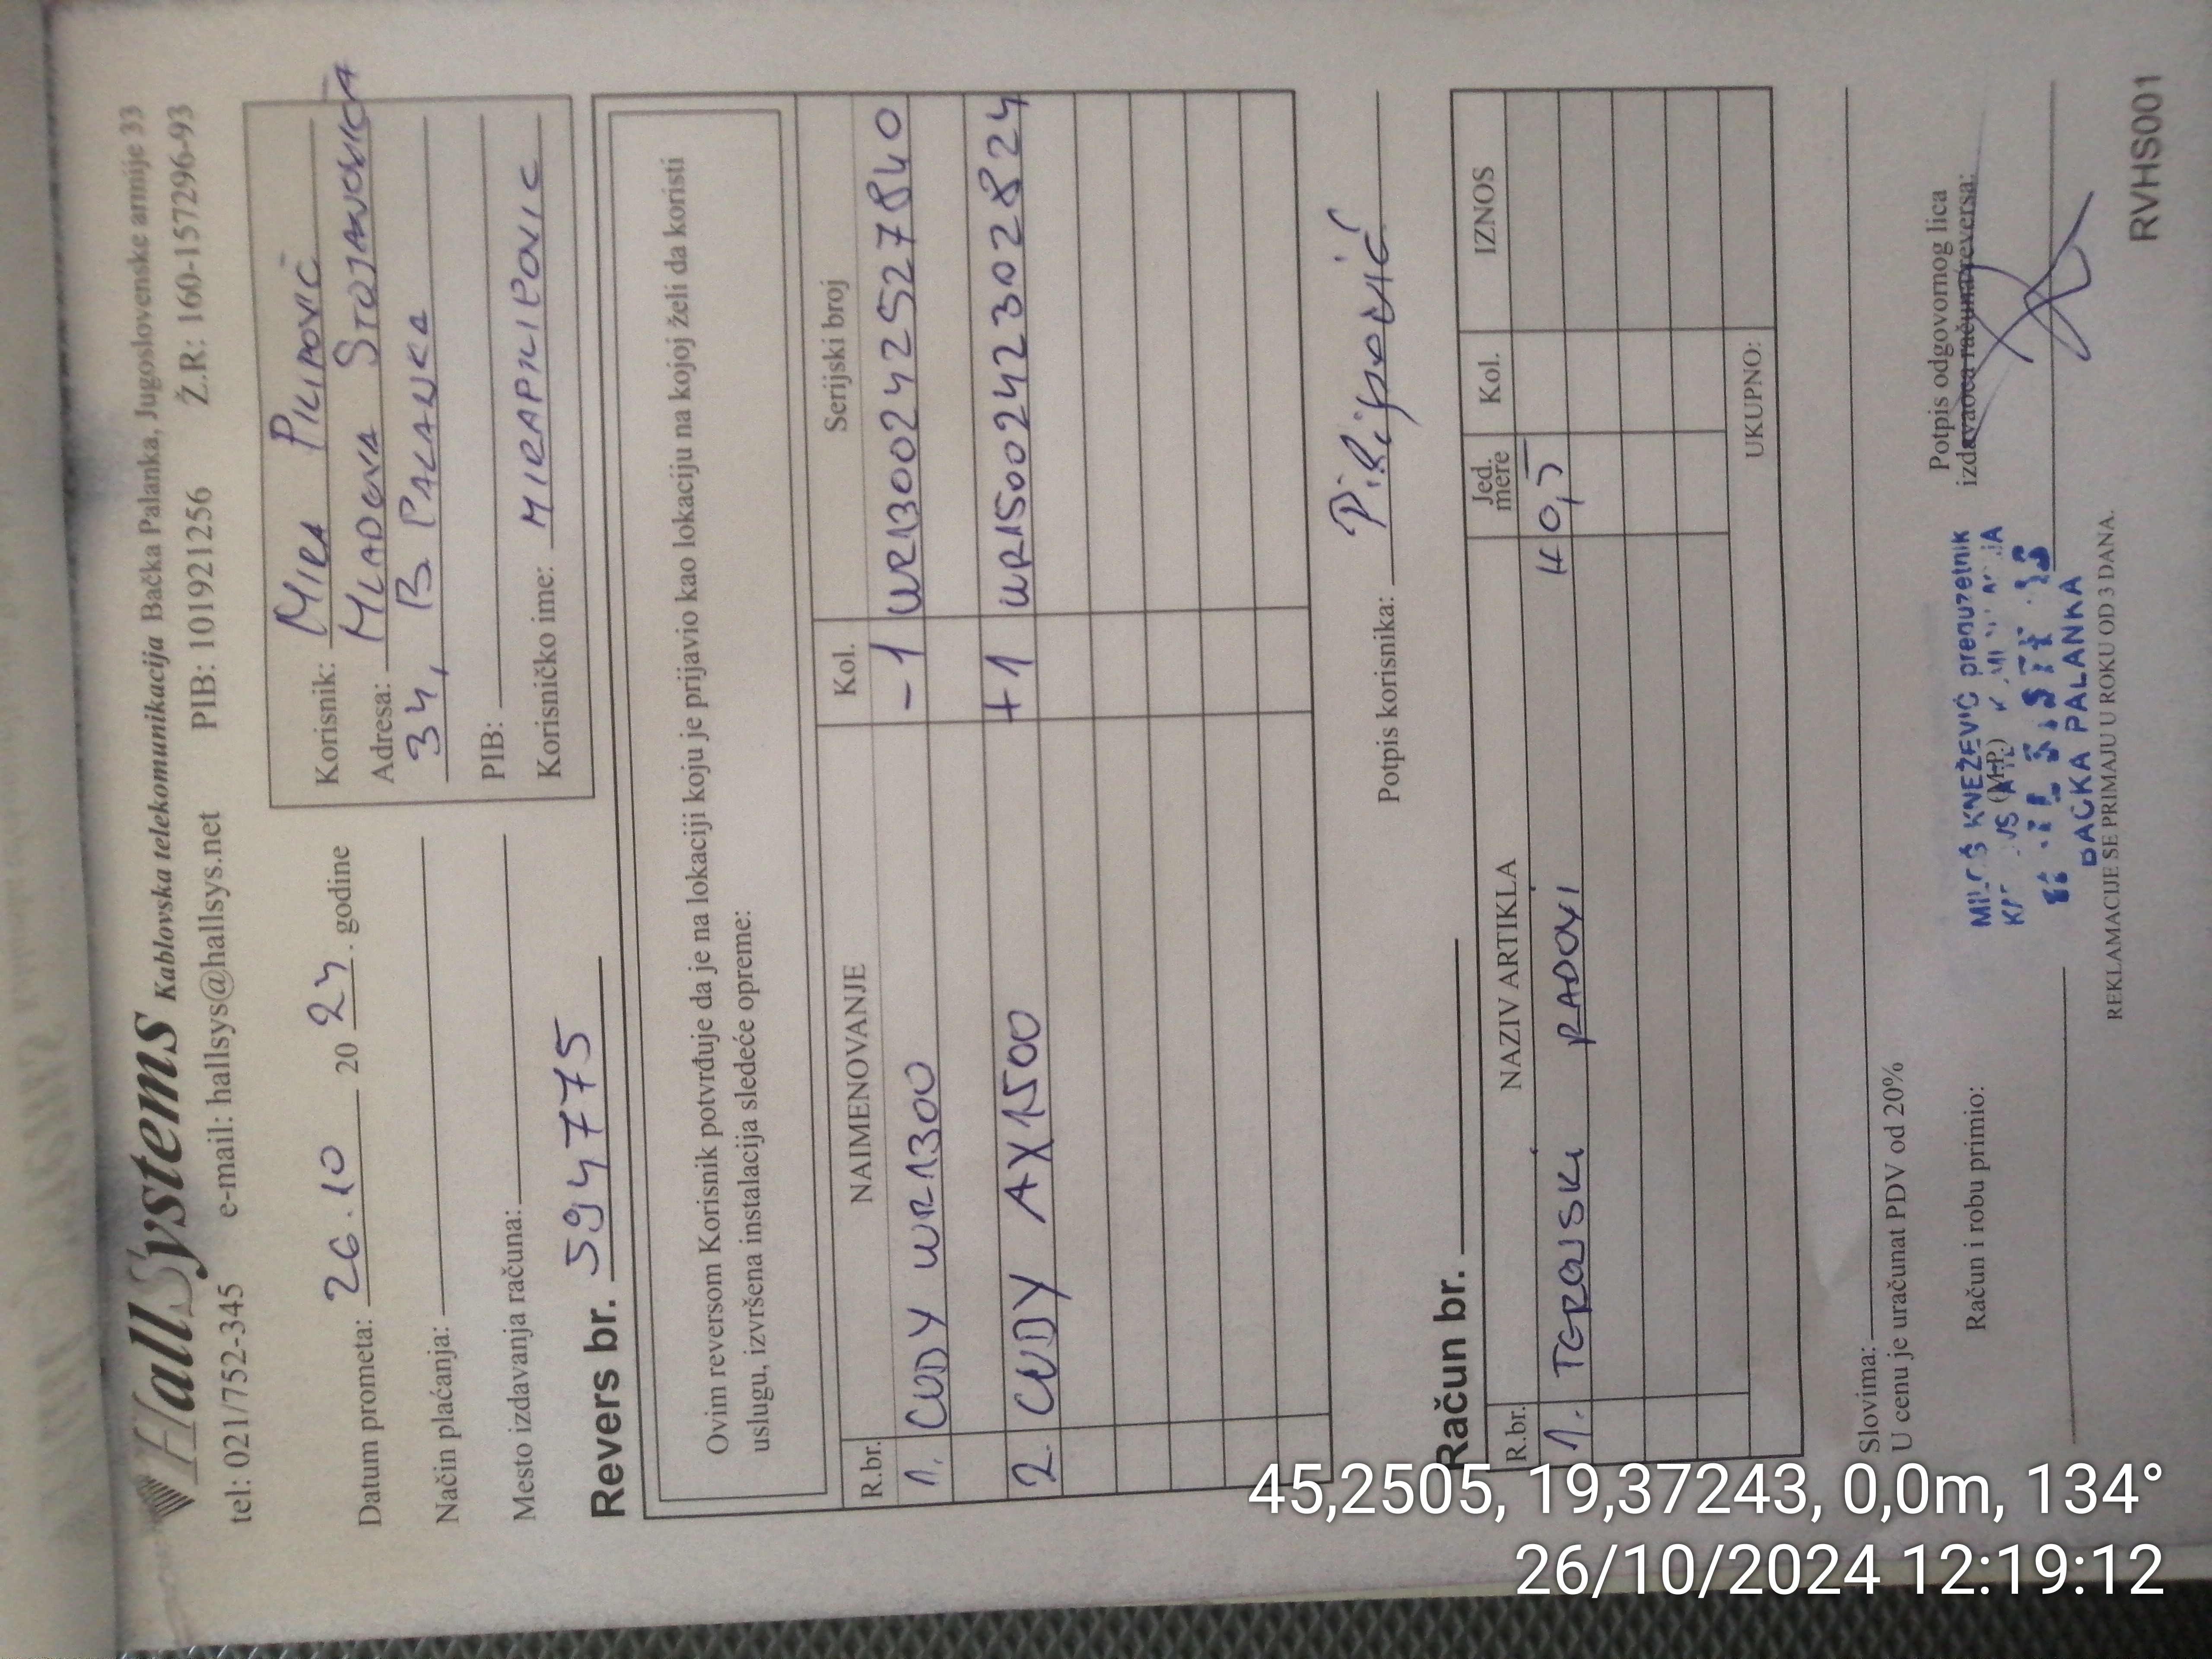 HallSystems Kablovska telekomunikacija Bačka Palanka, Jugoslovenske armije 33
tel: 021/752-345 e-mail: hallsys@hallsys.net PIB: 101921256 Ž.R: 160-157296-93
Datum prometa: 26.10 2024. godine
Način plaćanja:
Mesto izdavanja računa:
Korisnik: MIRA PILIPOVIĆ
Adresa: MLADENA STOJANOVIĆA
34, B PALANKA
PIB:
Korisničko ime: MIRAPILIPOVIC
Revers br. 594775
Ovim reversom Korisnik potvrđuje da je na lokaciji koju je prijavio kao lokaciju na kojoj želi da koristi
uslugu, izvršena instalacija sledeće opreme:
R.br. NAIMENOVANJE Kol. Serijski broj
1. CUDY WR1300 -1 WR1300242527840
2. CUDY AX1500 +1 WR1500242302824
Potpis korisnika: Pilipović
Račun br.
R.br. NAZIV ARTIKLA Jed. mere Kol. IZNOS
1. TERENSKI RADOVI H 0,5
UKUPNO:
Slovima:
U cenu je uračunat PDV od 20%
Račun i robu primio:
(M.P.)
MILOŠ KNEŽEVIĆ preduzetnik
BAČKA PALANKA
Potpis odgovornog lica
izdavaoca računa/reversa:
REKLAMACIJE SE PRIMAJU U ROKU OD 3 DANA.
RVHS001
45,2505, 19,37243, 0,0m, 134°
26/10/2024 12:19:12